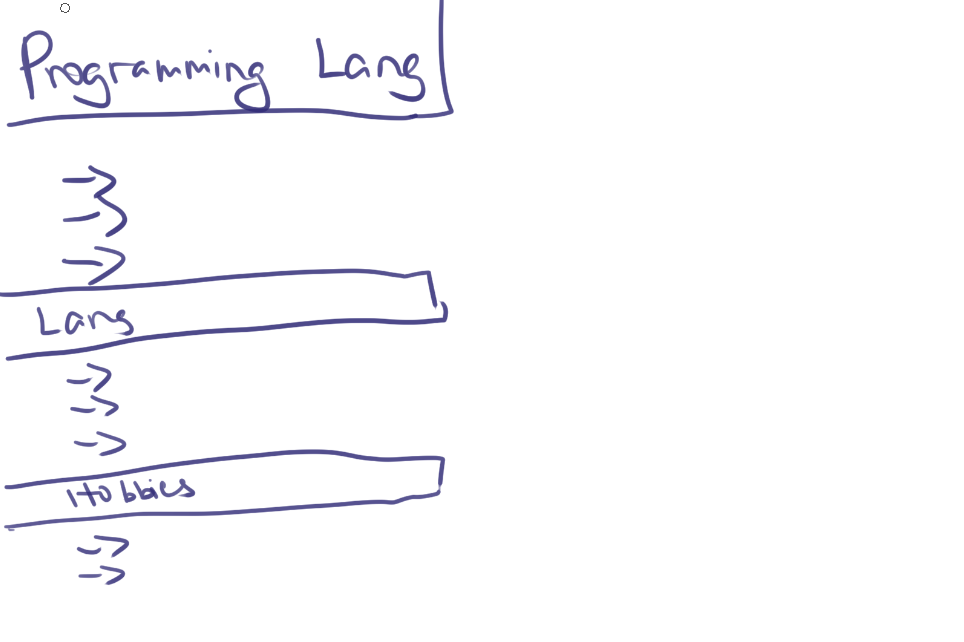 Programming Lang
->
->
->
Lang
->
->
->
Hobbies
->
->